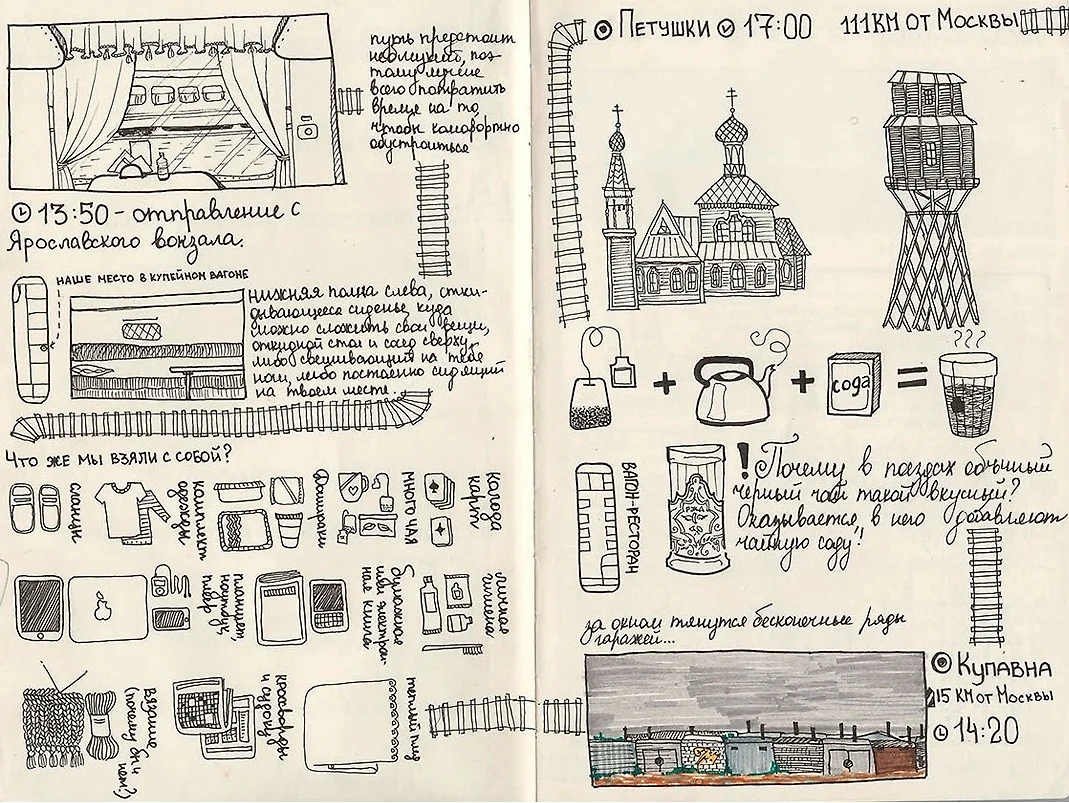 путь предстоит
неблизкий, поэ-
тому лучше
всего потратить
время на то,
чтобы комфортно
обустроиться
13:50 - отправление с
Ярославского вокзала.
НАШЕ МЕСТО В КУПЕЙНОМ ВАГОНЕ
нижняя полка слева, отки-
дывающееся сиденье, куда
можно сложить свои вещи,
откидной стол и сосед сверху,
либо свешивающий на тебя
ноги, либо постоянно сидящий
на твоем месте...
Что же мы взяли с собой?
сланцы
комплект
одежды
Дошираки
много чая
колода
карт
планшет,
ноутбук,
плеер
бумажная
или электрон-
ная книга
личная
гигиена
Вязание
(почему бы и
нет?)
кроссворды
и судоку
теплый плед
Петушки 17:00 111 КМ ОТ МОСКВЫ
+ + сода =
ВАГОН-РЕСТОРАН
РЖД
! Почему в поездах обычный
черный чай такой вкусный?
Оказывается, в него добавляют
чайную соду!
за окном тянутся бесконечные ряды
гаражей...
Купавна
15 КМ от Москвы
14:20